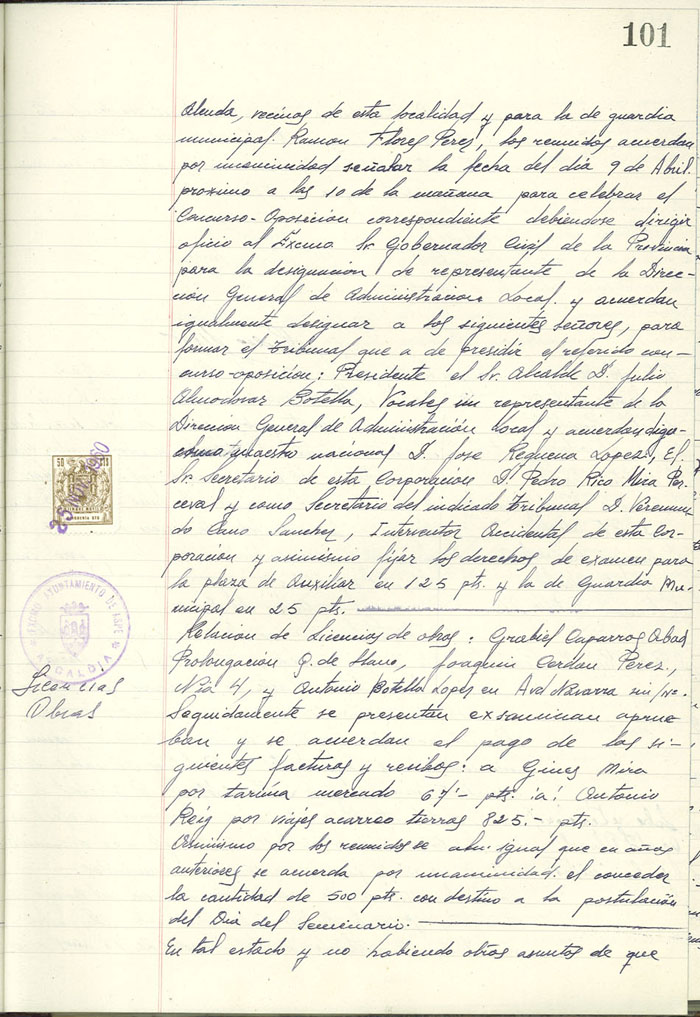 101
Alenda, vecinos de esta localidad y para la de guardia
municipal. Ramon Flores Perez, los reunidos acuerdan
por unanimidad señalar la fecha del dia 9 de Abril
proximo a las 10 de la mañana para celebrar el
Concurso-Oposicion correspondiente debiendose dirigir
oficio al Excmo Sr. Gobernador Civil de la Provincia
para la designacion de representante de la Direc-
cion General de Administracion Local y acuerdan
igualmente designar a los siguientes señores, para
formar el Tribunal que a de presidir el referido con-
curso-oposicion: Presidente el Sr. Alcalde D. Julio
Almodovar Botella, Vocales un representante de la
Direccion General de Administracion Local y acuerdan digo
como maestro nacional D. Jose Requena Lopez, El
Sr. Secretario de esta Corporacion D. Pedro Rico Mira Per-
ceval y como Secretario del indicado Tribunal D. Veremun-
do Cano Sanchez, Interventor Accidental de esta Cor-
poracion y asimismo fijar los derechos de examen para
la plaza de Auxiliar en 125 pts. y la de Guardia Mu-
nicipal en 25 pts.
50 CTS
25 1960
EXCMO. AYUNTAMIENTO DE ASPE
ALCALDIA
Licencias
Obras
Relacion de Licencias de obras: Grabiel Caparros Abad
Prolongacion G. de Llano, Joaquin Cerdan Perez,
Nia 4, y Antonio Botella Lopez en Avd Navarra sin/nº.
Seguidamente se presentan exsaminan aprue
ban y se acuerdan el pago de las si-
guientes facturas y recibos: a Gines Mira
por tarima mercado 67'- pts. a: Antonio
Reig por viajes acarreo tierras 825.- pts.
Asimismo por los reunidos se igual que en años
anteriores se acuerda por unanimidad el conceder
la cantidad de 500 pts. con destino a la postulación
del Dia del Seminario.
En tal estado y no habiendo otros asuntos de que